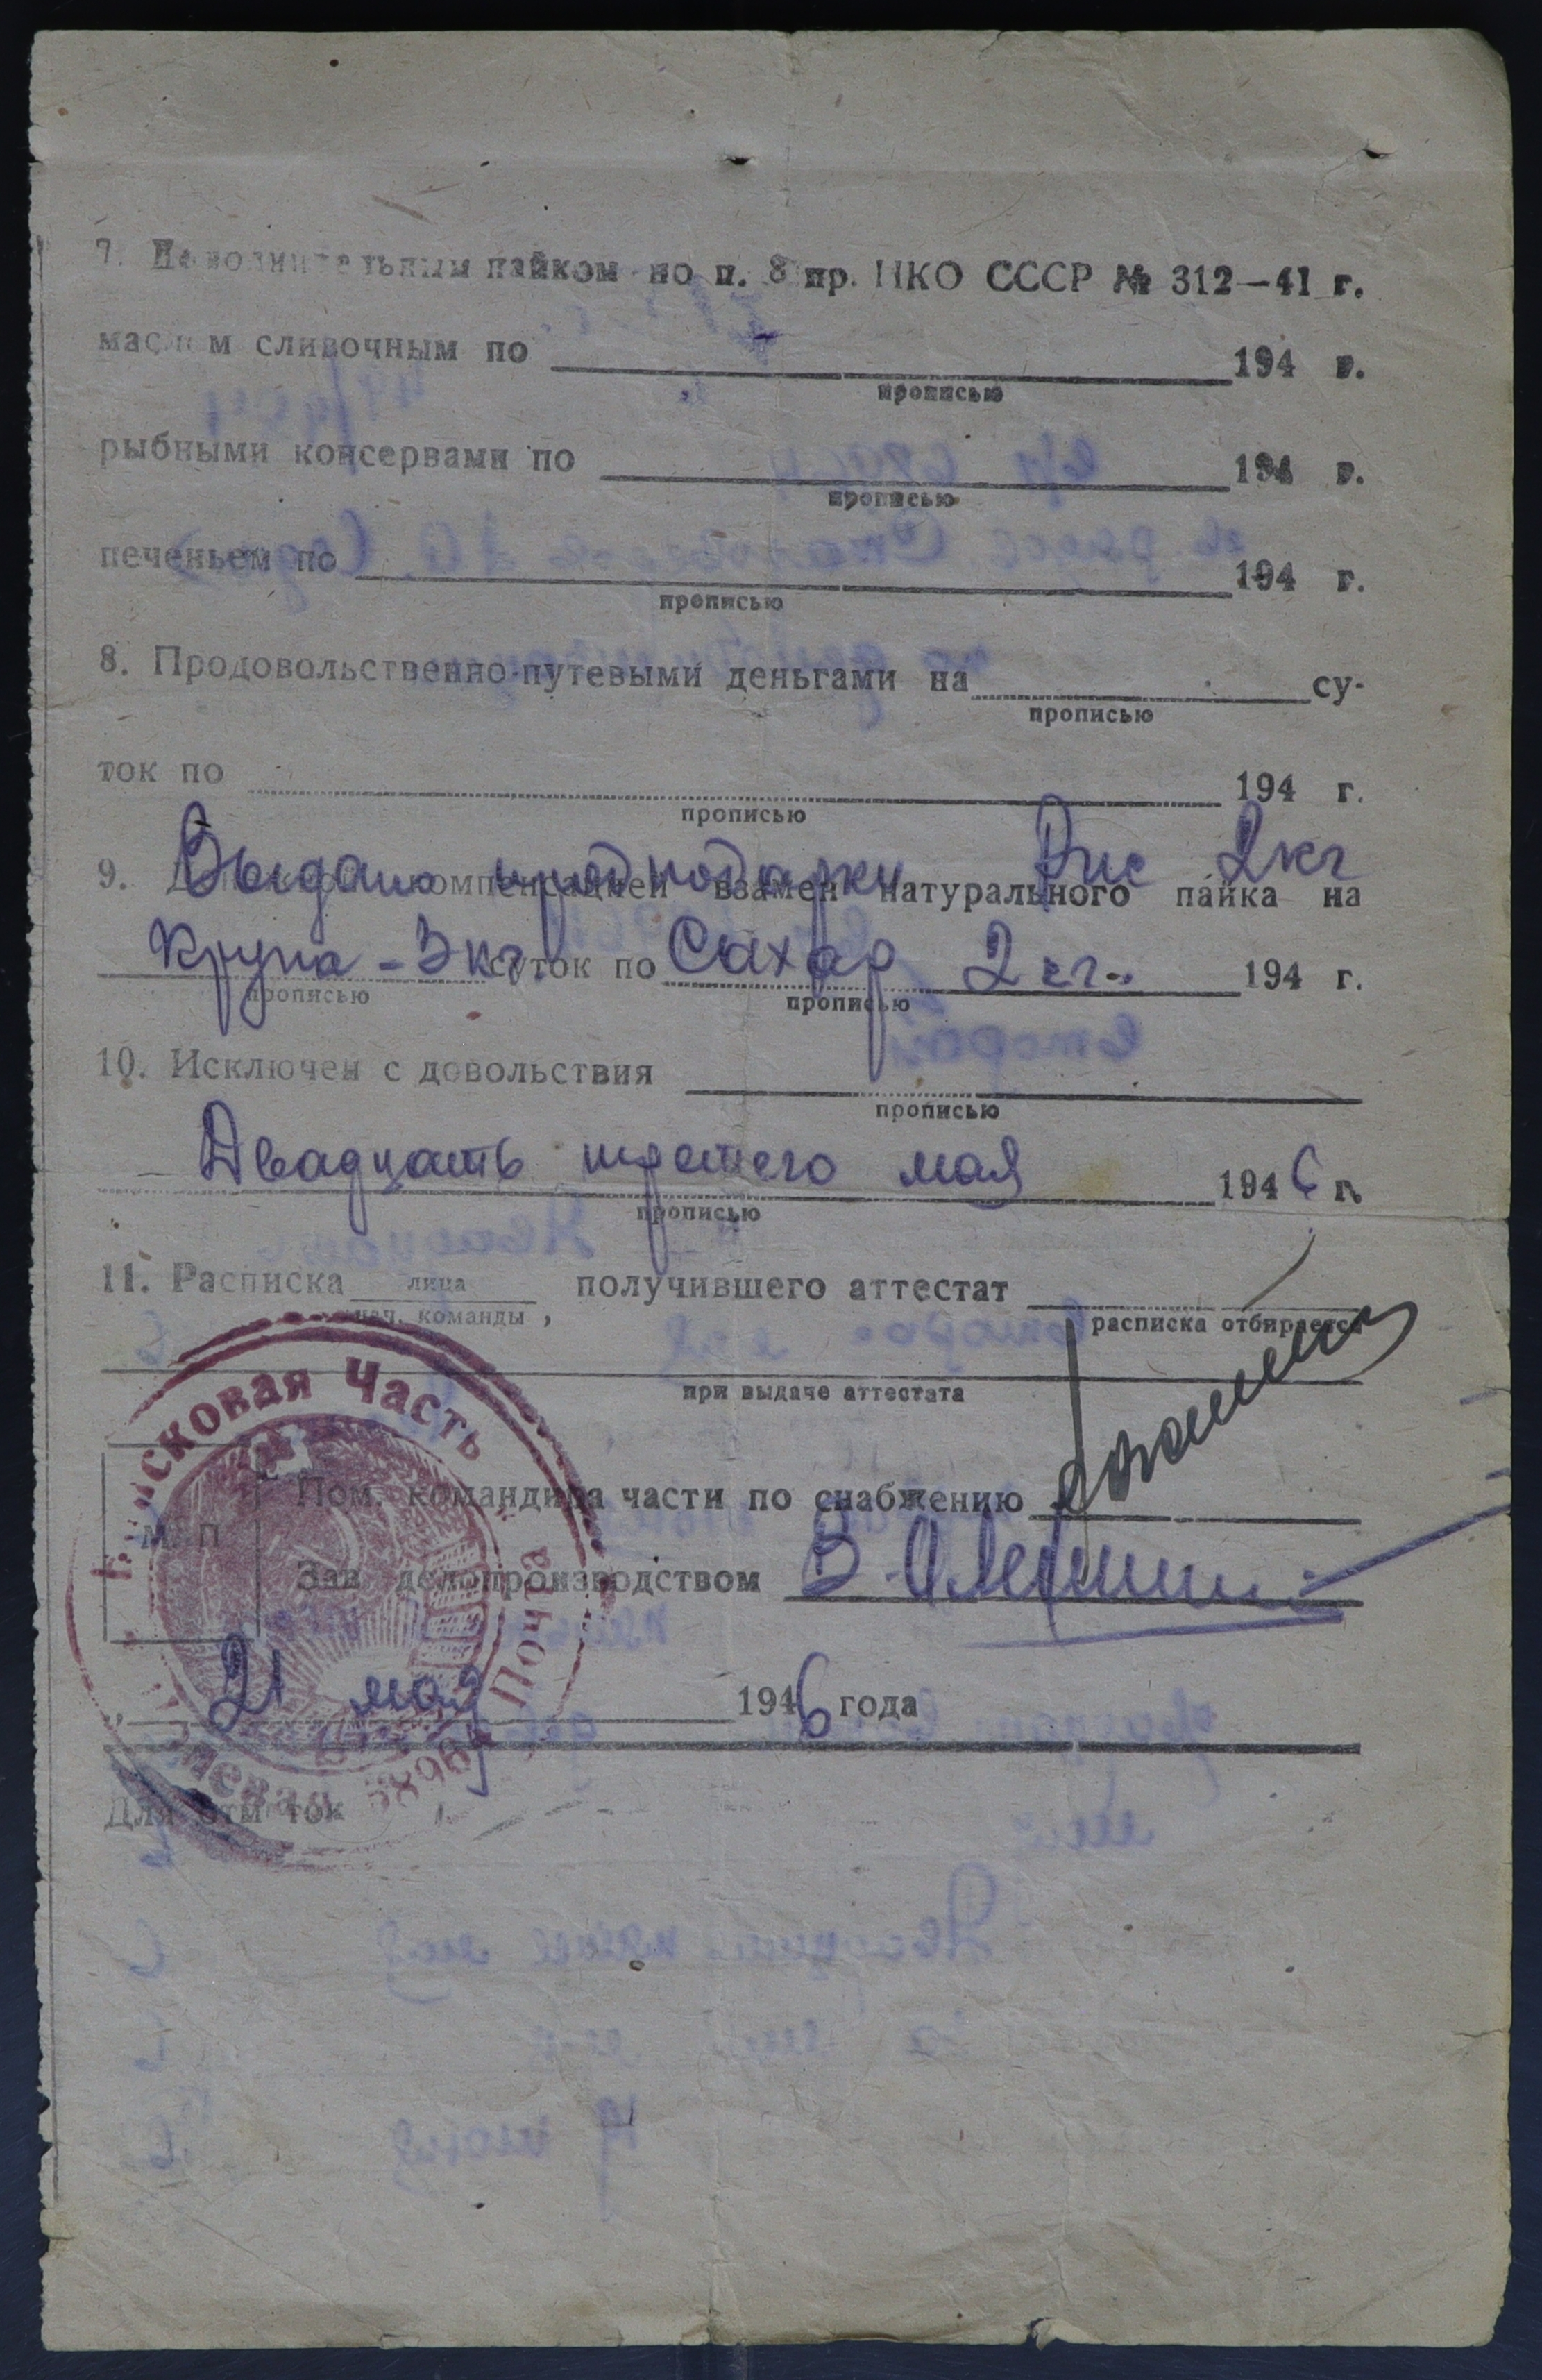 7. Дополнительным пайком по п. 8 пр. НКО СССР № 312—41 г.
маслом сливочным по 194 г.
прописью
рыбными консервами по 194 г.
прописью
печеньем по 194 г.
прописью
8. Продовольственно-путевыми деньгами на су-
прописью
ток по 194 г.
прописью
Выдано продподарки Рис 2кг
9. компенсацией взамен натурального пайка на
Крупа - 3 кг. суток по Сахар 2 кг. 194 г.
прописью прописью
10. Исключен с довольствия
прописью
Двадцать третьего мая 1946 г.
прописью
11. Расписка лица получившего аттестат
нач. команды, расписка отбирается
при выдаче аттестата
Войсковая Часть
Пом. командира части по снабжению
М П
Зав. делопроизводством
Полевая Почта 58964
21 мая 1946 года
Для отметок